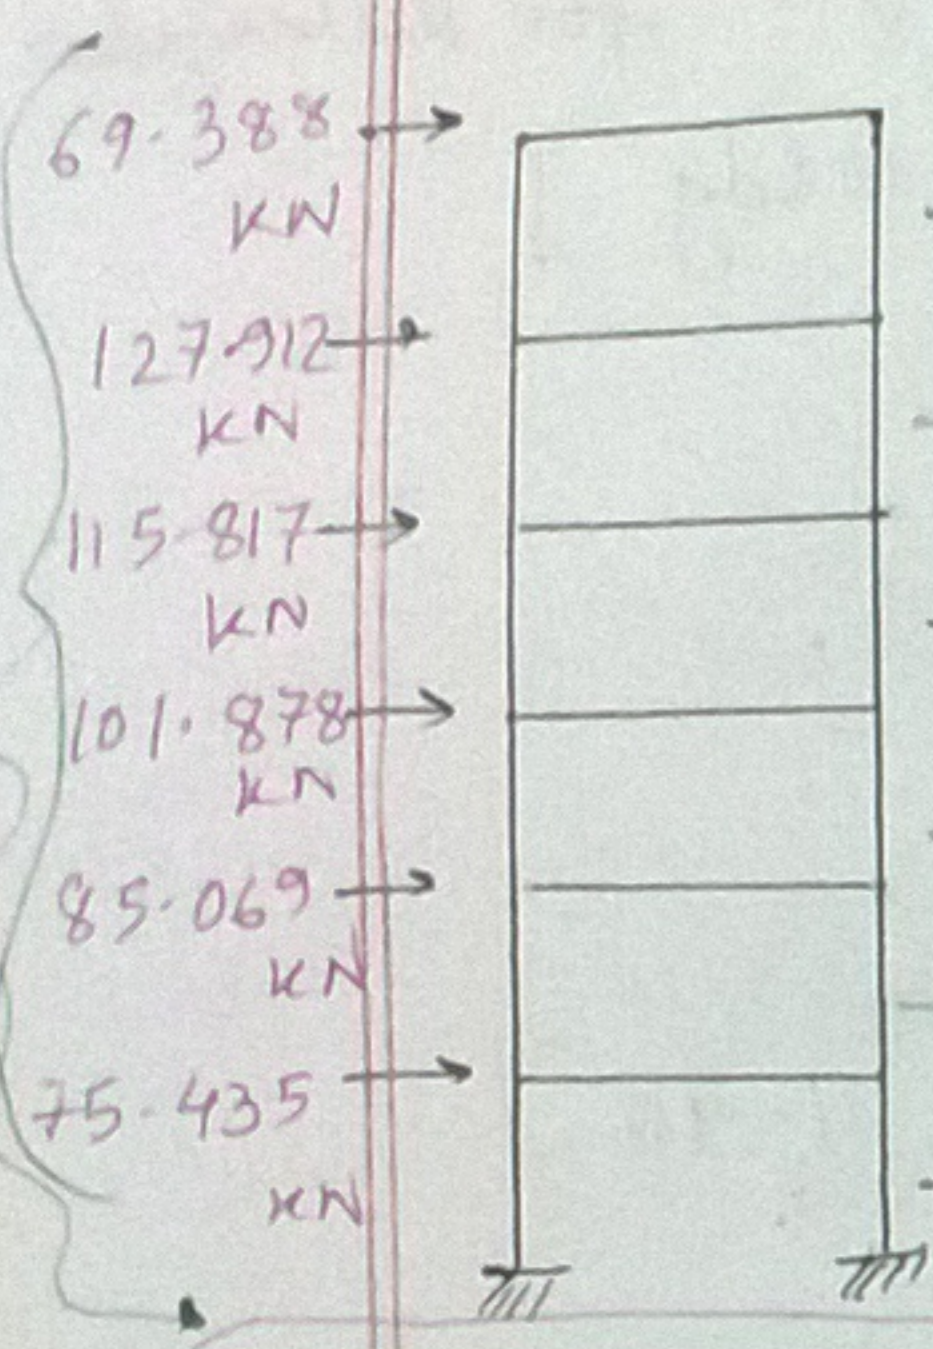 69.388
KN
127.912
KN
115.817
KN
101.878
KN
85.069
KN
75.435
KN